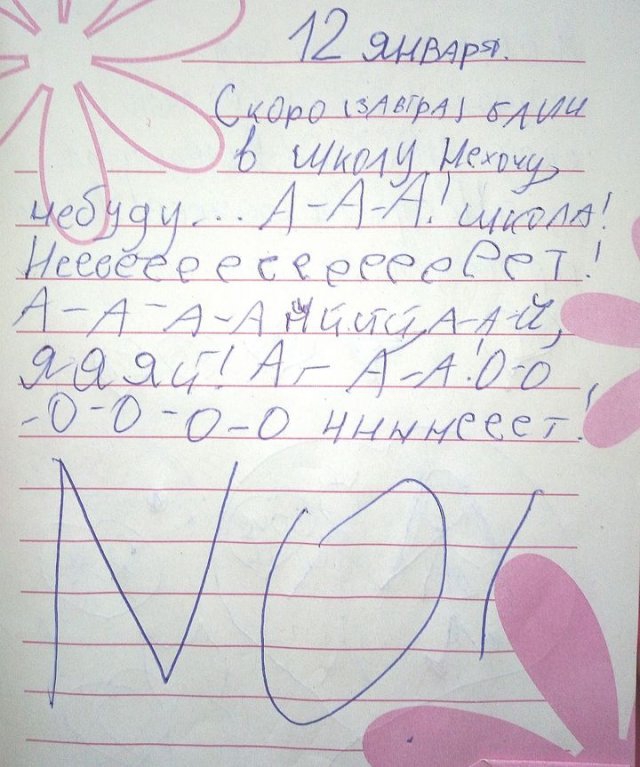 12 января.
Скоро (завтра) блин
в школу Нехочу,
небуду... А-А-А! школа!
Нееееееееееееееет!
А-А-А-А йййй,А-А-Й,
Я-Я Яй! А-А-А!О-О
-О-О-О-О ннннееет!
NO!